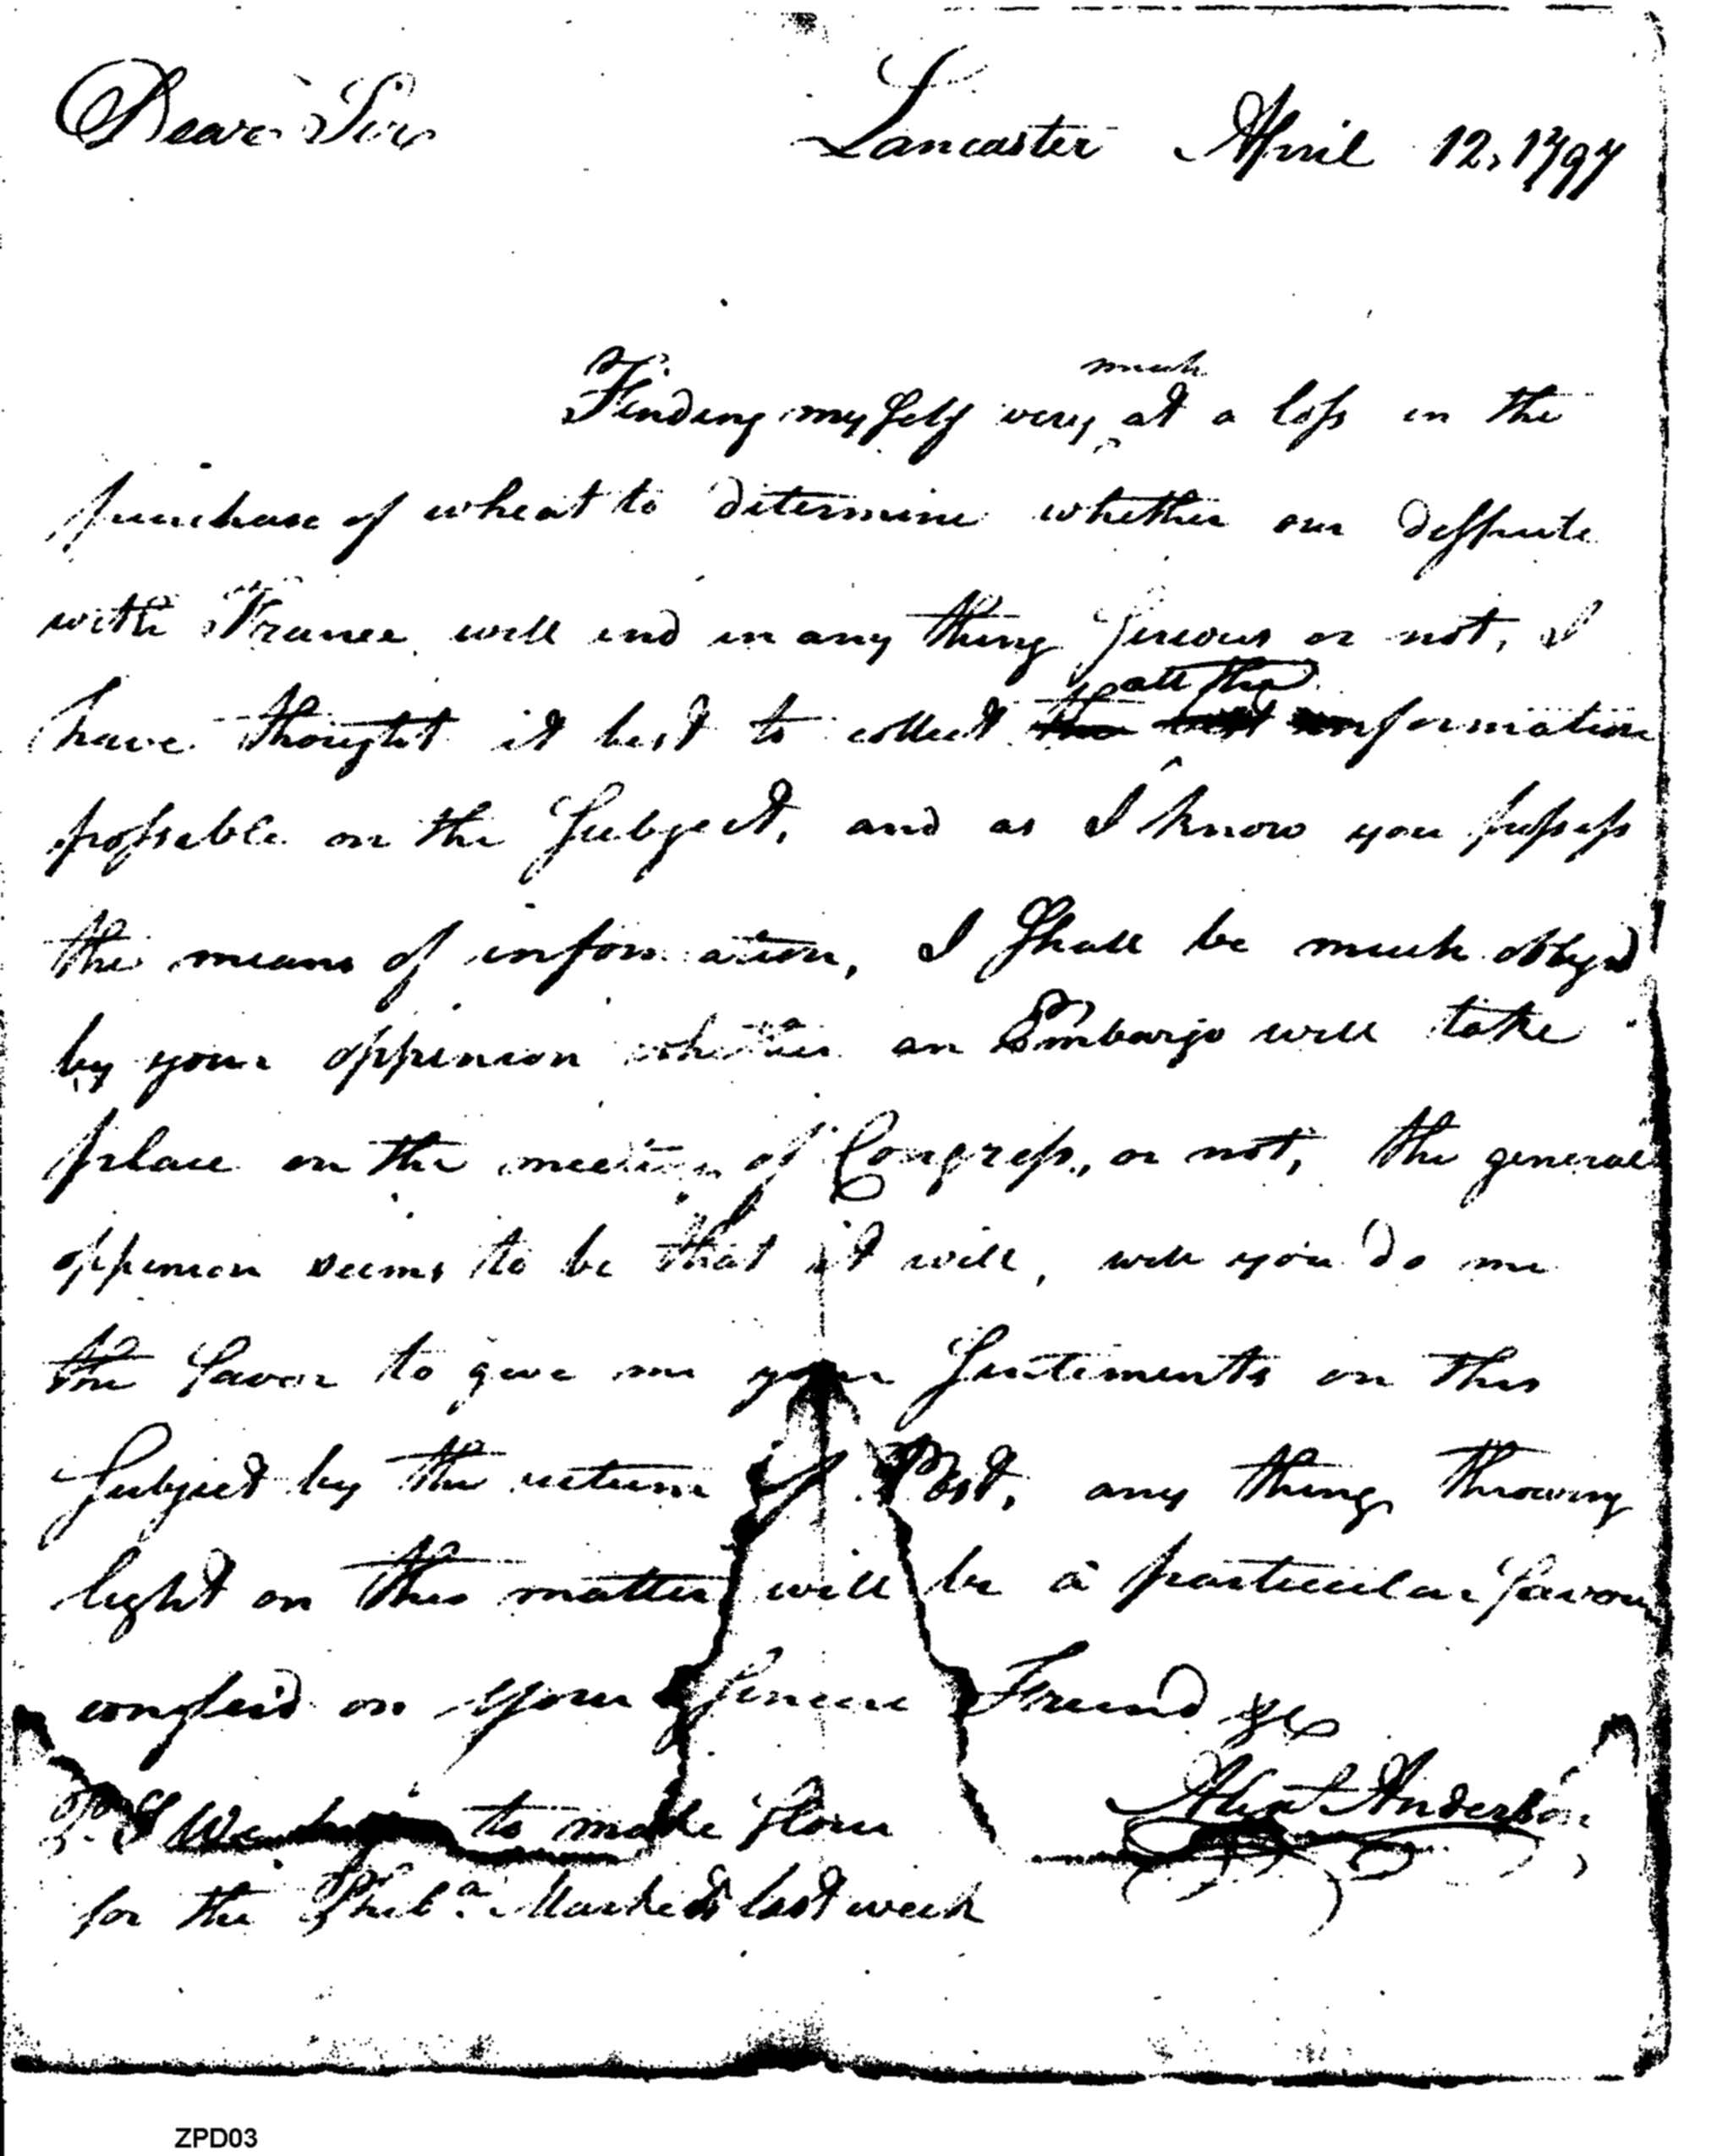 Dear Sir Lancaster April 12, 1797
much
Finding my Self very at a loss in the
purchase of wheat to ditermine whether our dispute
with France will end in any thing Serious or not, I
all the
have thought it best to collect the information
possable on the Subject, and as I know you possess
the means of information, I Shall be much obliged
by your oppinion whether an Embargo will take
place on the meeting of Congress, or not, the general
oppinion seems to be that it will, will you do me
the favor to give me your Sentiments on this
Subject by the return of Post, any thing throwing
light on this matter will be a particular favour
confer'd on your Sincere Friend &c
Alexr Anderson
P.S We to make flour
for the Phila. Market last week
ZPD03